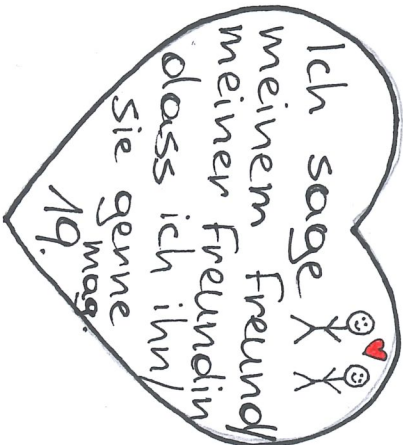 Ich sage
meinem Freund/
meiner Freundin
dass ich ihn/
sie genne
mag.
19.